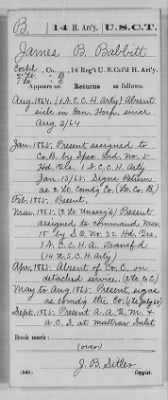 B. 14 H. Art'y. U.S.C.T.
James B. Babbitt
, Co. , 14 Reg't U. S. Col'd H. Art'y.
Appears on
Returns as follows:
Aug. 1864. (1 N.C.C.H. Arty) Absent
sick in Gen. Hosp. since
Aug 2/64
Jan. 1865. Present assigned to
Co. B. by Spec. Ord. No. 5
1 N.C.C.H. Arty
Jan. 13/65. Signs Return
as 2 Lt. Comdg Co. (to Co. B)
Feb. 1865. Present.
Mar. 1865. Present.
assigned to command
15 by S.O. No. 32 Hd. Qrs.
1 N.C.C.H.A. transf'd
(14 U.S.C.H. Arty)
Apr. 1865. Absent of Co. C, on
detached service.
May to Aug 1865. Present, signs
as comdg the Co.
Sept. 1865. Present A. A. Q. M. &
A. C. S. at Inlet
Book mark:
(over)
J. B. Sitler
(546) Copyist.